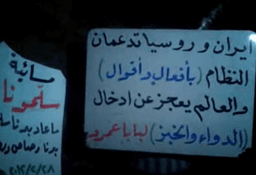 ايران وروسيا تدعمان
النظام (بأفعال وأقوال)
والعالم يعجز عن ادخال
(الدواء والخبز) لبابا عمرو
مسائية
سلمونا
ما عاد بدنا
بدنا رصاص